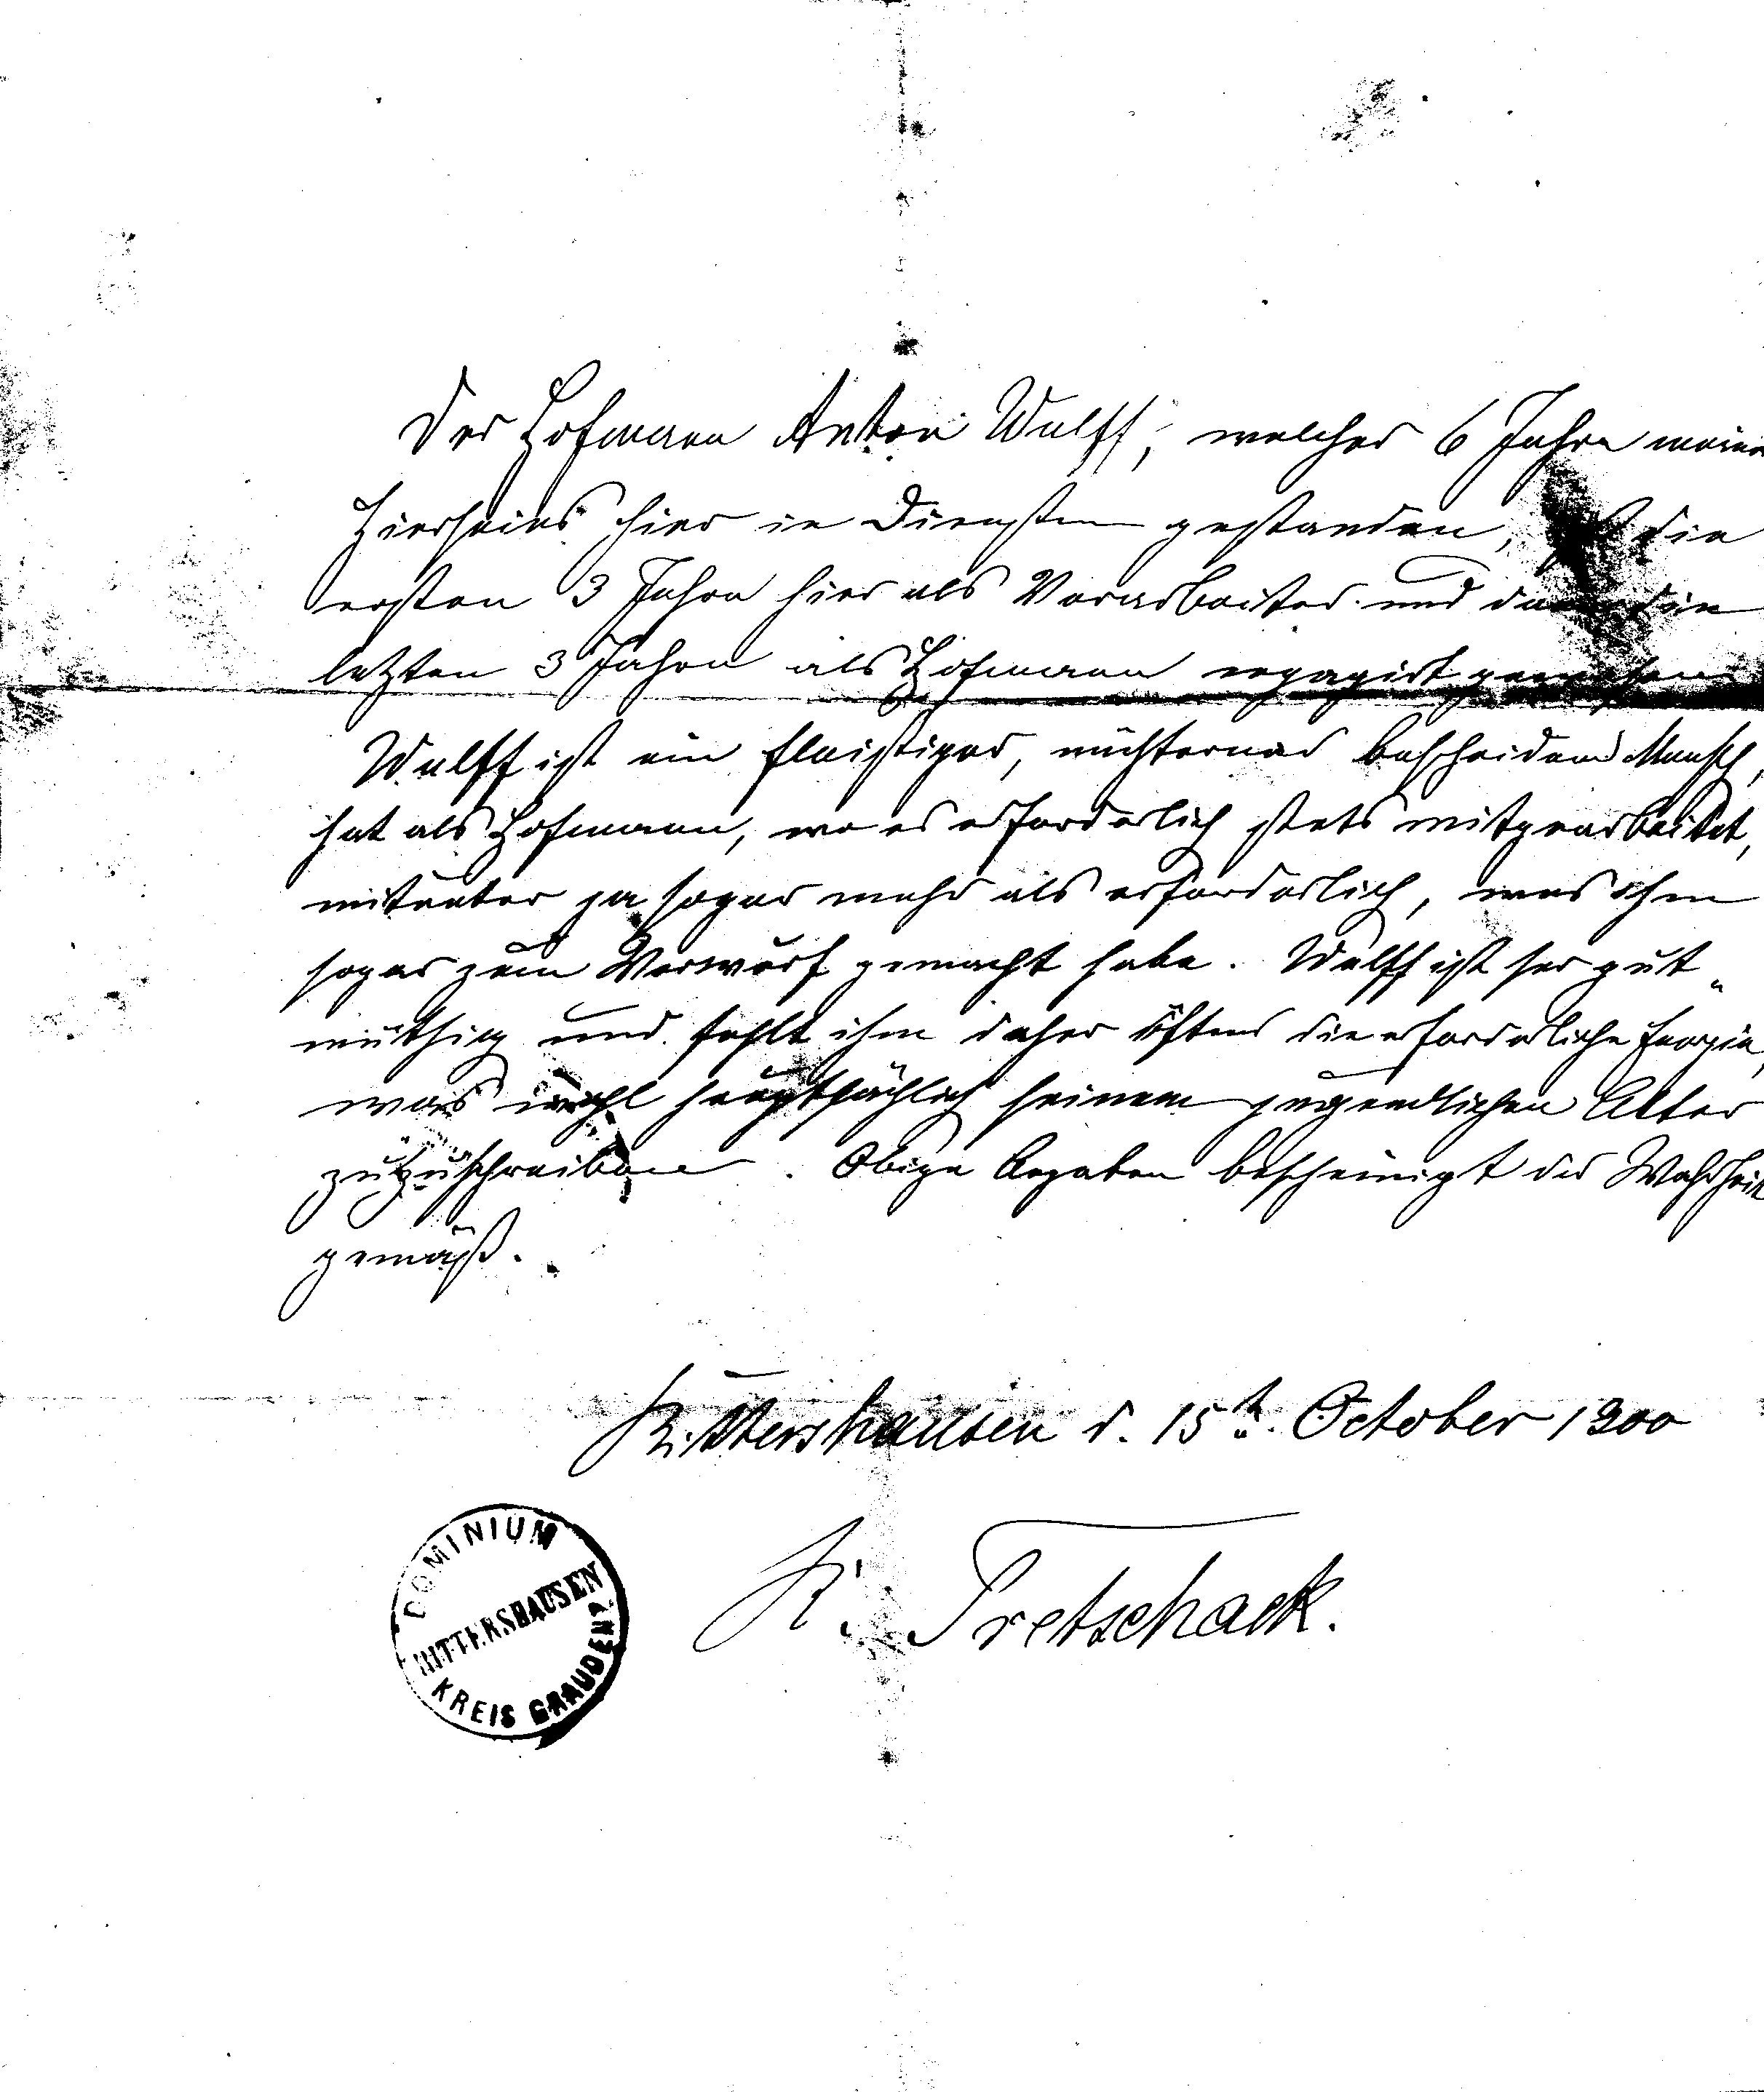 Der Hofmann Anton Wulff, welcher 6 Jahre meines
Hierseins hier in Diensten gestanden, ist die
ersten 3 Jahre hier als Vorarbeiter und dann die
letzten 3 Jahre als Hofmann engagirt gewesen
Wulff ist ein fleißiger, nüchterner bescheidener Mensch,
hat als Hofmann, wo es erforderlich stets mitgearbeitet,
mitunter ja sogar mehr als erforderlich, was ihm
sogar zum Vorwurf gemacht habe. Wulff ist ser gut„
müthig und fehlt ihm daher öfters die erforderliche Energie,
was wohl hauptsächlich seinem jugendlichen Alter
zuzuschreiben. Obige Angaben bescheinigt der Wahrheit
gemäß.
Rittershausen d. 15t. October 1900
R. Tretschack.
DOMINIUM
RITTERSHAUSEN
KREIS GRAUDENZ